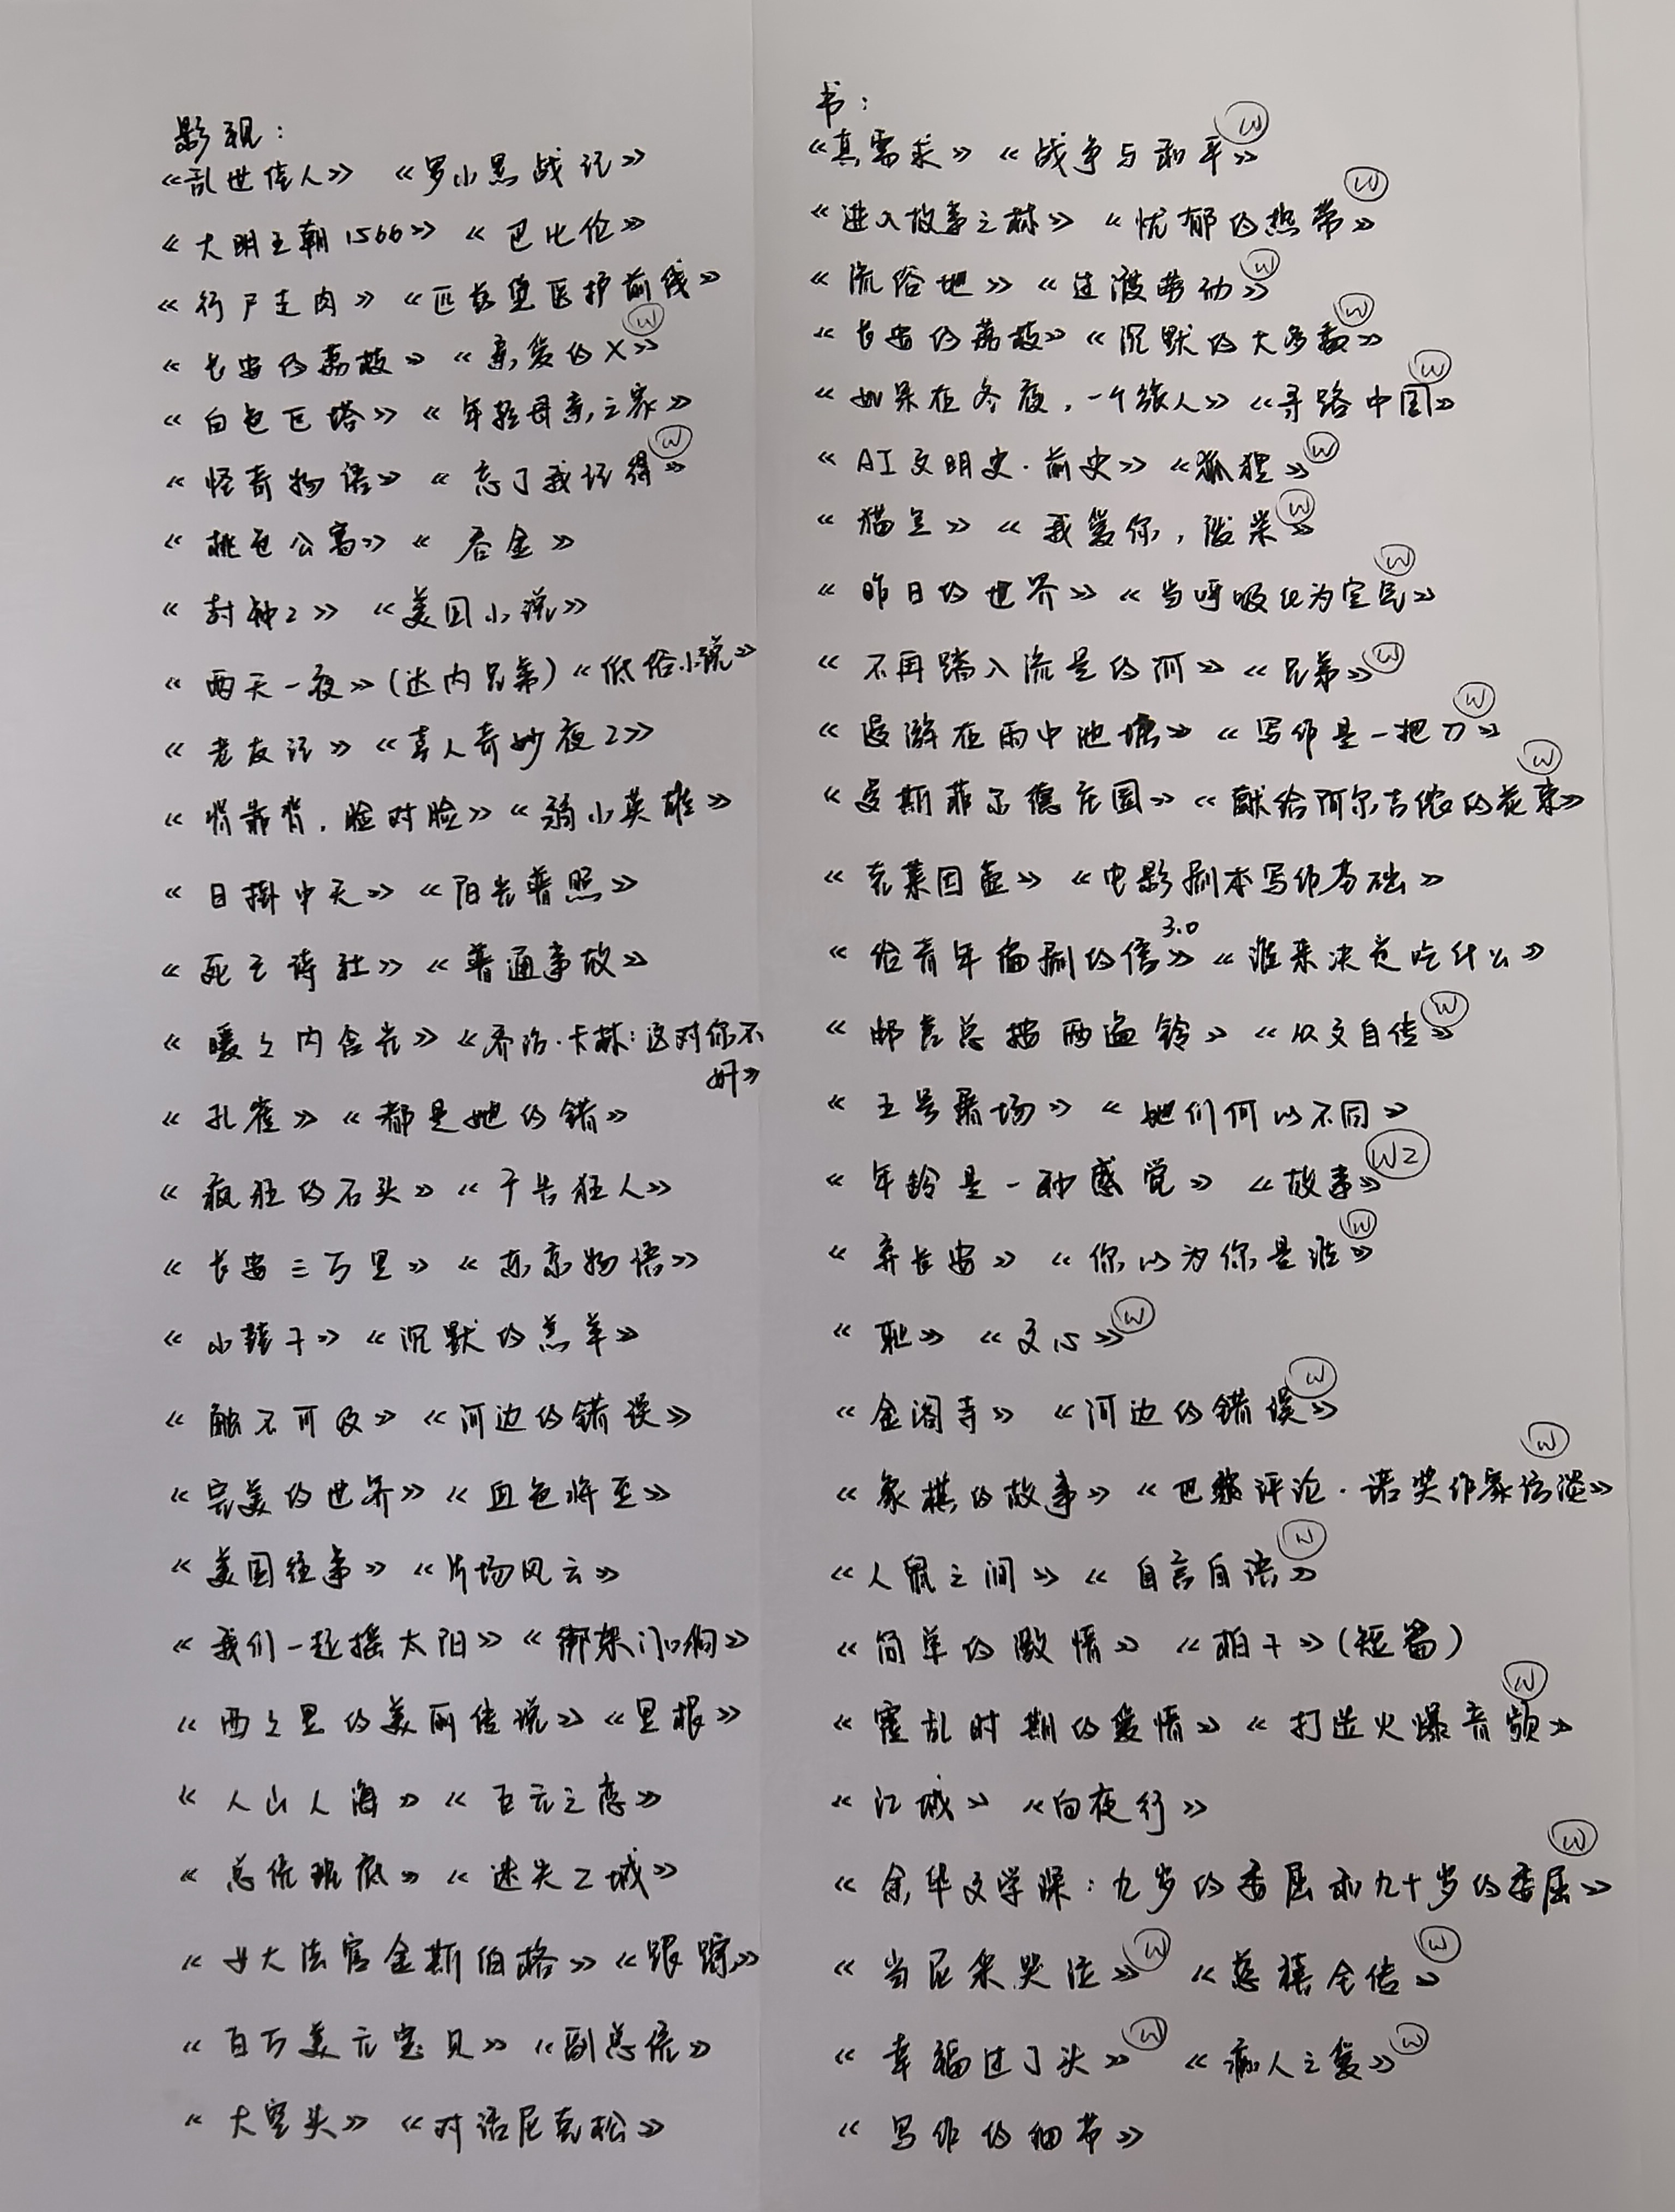 影视：
《乱世佳人》 《罗小黑战记》
《大明王朝1566》 《巴比伦》
《行尸走肉》 《匹兹堡医护前线》
《长安的荔枝》 《亲爱的X》 W
《白色巨塔》 《年轻母亲之家》
《怪奇物语》 《忘了我记得》 W
《桃色公寓》 《吞金》
《封神2》 《美国小说》
《两天一夜》(达内兄弟) 《低俗小说》
《老友记》 《喜人奇妙夜2》
《背靠背，脸对脸》 《弱小英雄》
《日掛中天》 《阳光普照》
《死亡诗社》 《普通事故》
《暖暖内含光》 《乔治·卡林：这对你不
好》
《孔雀》 《都是她的错》
《疯狂的石头》 《广告狂人》
《长安三万里》 《东京物语》
《小鞋子》 《沉默的羔羊》
《触不可及》 《河边的错误》
《完美的世界》 《血色将至》
《美国往事》 《片场风云》
《我们一起摇太阳》 《绑架门口狗》
《西西里的美丽传说》 《里根》
《人山人海》 《百元之恋》
《总统班底》 《迷失Z城》
《女大法官金斯伯格》 《跟踪》
《百万美元宝贝》 《副总统》
《大空头》 《对话尼克松》
书：
《真需求》 《战争与和平》 W
《进入故事之林》 《忧郁的热带》 W
《流俗地》 《过渡劳动》 W
《长安的荔枝》 《沉默的大多数》 W
《如果在冬夜，一个旅人》 《寻路中国》 W
《AI文明史·前史》 《狐狸》 W
《猫鱼》 《我爱你，泼柴》 W
《昨日的世界》 《当呼吸化为空气》 W
《不再踏入流是的河》 《兄弟》 W
《漫游在雨中池塘》 《写作是一把刀》 W
《曼斯菲尔德庄园》 《献给阿尔吉侬的花束》 W
《克莱因壶》 《电影剧本写作基础》
《给青年编剧的信》3.0 《谁来决定吃什么》
《邮差总按两遍铃》 《从文自传》 W
《五号屠场》 《她们何以不同》
《年龄是一种感觉》 《故事》 W2
《弃长安》 《你以为你是谁》 W
《耻》 《文心》 W
《金阁寺》 《河边的错误》 W
《象棋的故事》 《巴黎评论·诺奖作家访谈》 W
《人鼠之间》 《自言自语》 W
《简单的激情》 《拍子》(短篇)
《霍乱时期的爱情》 《打造火爆音频》 W
《江城》 《白夜行》
《余华文学课：九岁的委屈和九十岁的委屈》 W
《当尼采哭泣》 W 《慈禧全传》 W
《幸福过了头》 W 《痴人之爱》 W
《写作的细节》